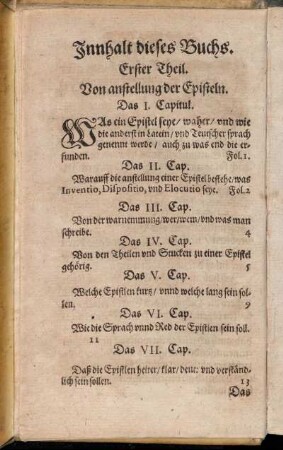 Innhalt dieses Buchs.
Erster Theil.
Von anstellung der Episteln.
Das I. Capitul.
WAs ein Epistel seye/ waher/ vnd wie
die anderst in Latein/ vnd Teutscher sprach
genennt werde/ auch zu was end die er-
funden. Fol. 1.
Das II. Cap.
Warauff die anstellung einer Epistel bestehe/ was
Inventio, Dispositio, vnd Elocutio seye. Fol. 2
Das III. Cap.
Von der warnemmung/ wer/ wem/ vnd was man
schreibe. 4
Das IV. Cap.
Von den Theilen vnd Stucken zu einer Epistel
gehörig. 5
Das V. Cap.
Welche Epistlen kurtz/ vnnd welche lang sein sol-
len. 9
Das VI. Cap.
Wie die Sprach vnnd Red der Epistlen sein soll.
11
Das VII. Cap.
Daß die Epistlen heiter/ klar/ deut: vnd verständ-
lich sein sollen. 13
Das